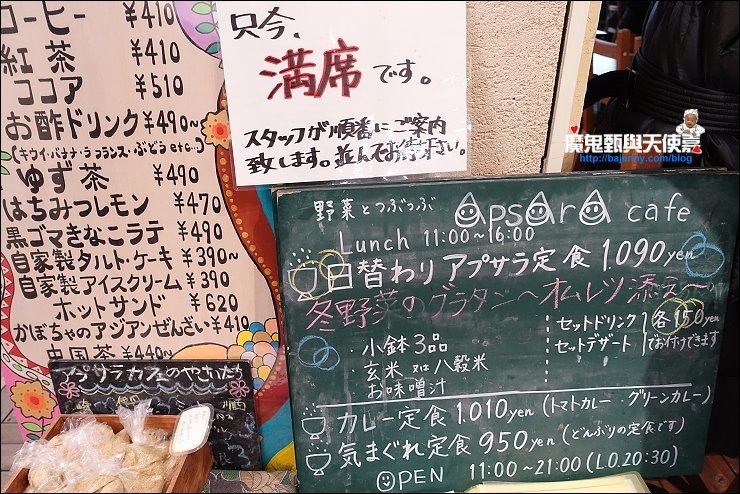 コーヒー ¥410
紅茶 ¥410
ココア ¥510
お酢ドリンク ¥490~
(キウイ・バナナ・ラ・フランス・ぶどう etc...)
ゆず茶 ¥490
はちみつレモン ¥470
黒ゴマきなこラテ ¥490
自家製タルト・ケーキ ¥390~
自家製アイスクリーム ¥390
ホットサンド ¥620
かぼちゃのアジアンぜんざい ¥410
中国茶 ¥440~
只今、
満席です。
スタッフが順番にご案内
致します。並んでお待ち下さい。
魔鬼甄與天使嘉
http://bajenny.com/blog
野菜とつぶつぶ Apsara cafe
Lunch 11:00~16:00
日替わりアプサラ定食 1.090yen
冬野菜のグラタン~オムレツ添え~
・小鉢3品
・玄米 又は 八穀米
・お味噌汁
セットドリンク 各150yen
セットデザート でお付けできます
カレー定食 1.010yen (トマトカレー・グリーンカレー)
気まぐれ定食 950yen (どんぶりの定食です)
OPEN 11:00~21:00 (L.O.20:30)
アプサラカフェのやさいたち